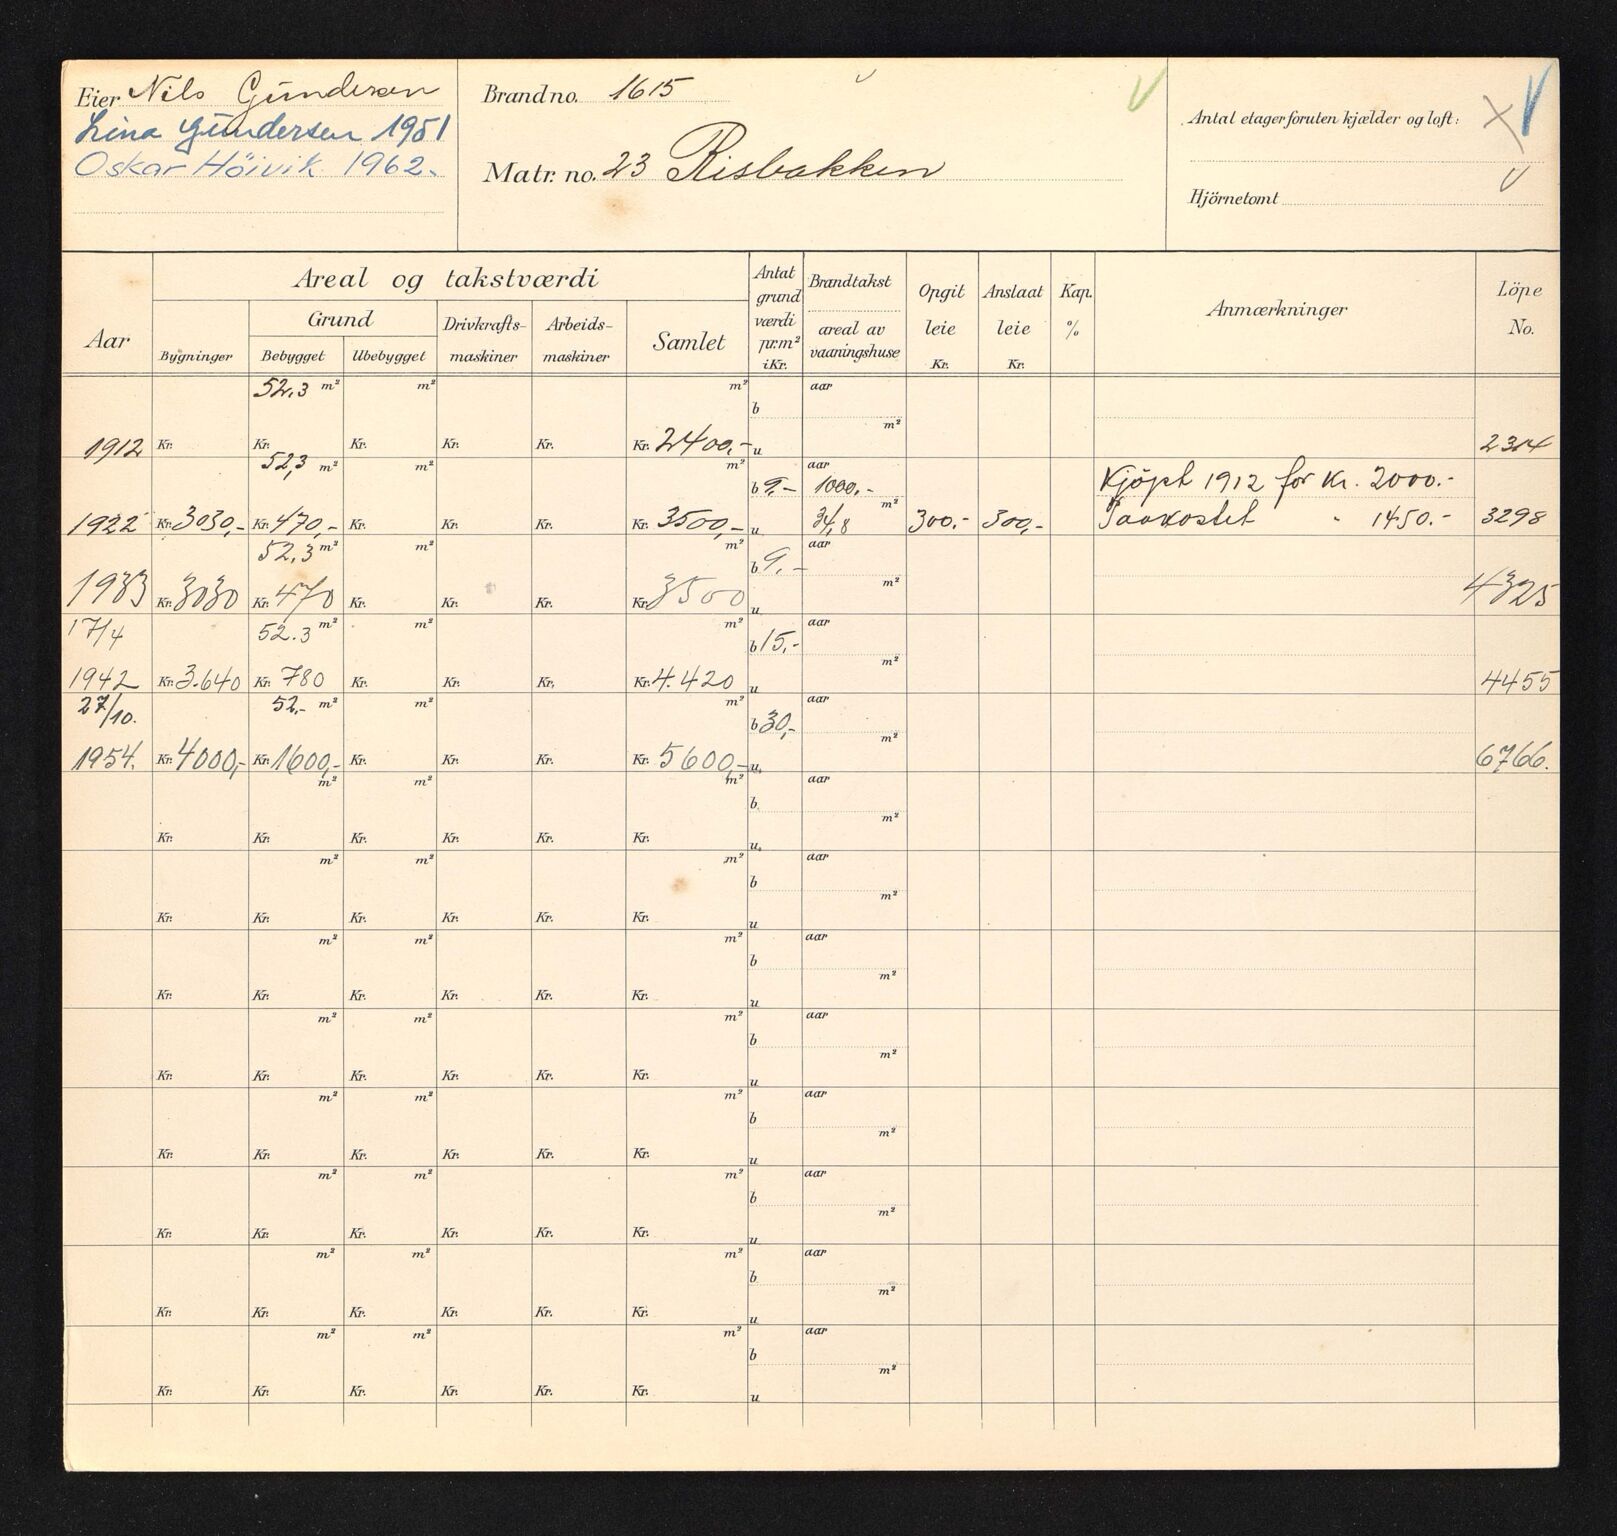 Eier Nils Gundersen
Lina Gundersen 1951
Oskar Höivik 1962.
Brandno. 1615
Matr. no. 23 Risbakken
Antal etager foruten kjælder og loft:
Hjörnetomt
Aar
Areal og takstværdi
Bygninger
Grund
Bebygget Ubebygget
Drivkrafts-maskiner
Arbeids-maskiner
Samlet
Antat grund værdi pr.m² i Kr.
Brandtakst
areal av vaaningshuse
Opgit leie Kr.
Anslaat leie Kr.
Kap. %
Anmærkninger
Löpe No.
52.3 m² m² m² aar
b
m²
1912 Kr. Kr. Kr. Kr. Kr. Kr. 2400,- u 2314
52,3 m² m² m² aar
b 9,- 1000,- Kjöpt 1912 for Kr. 2000.-
m²
1922 Kr. 3030,- Kr. 470,- Kr. Kr. Kr. Kr. 3500,- u 34,8 300.- 300,- Paakostet " 1450.- 3298
52,3 m² m² m² aar
b 9,-
m²
1933 Kr. 3030 Kr. 470 Kr. Kr. Kr. Kr. 3500 u 4325
17/4 52.3 m² m² m² aar
b 15,-
m²
1942 Kr. 3.640 Kr. 780 Kr. Kr. Kr. Kr. 4.420 u 4455
27/10. 52,- m² m² m² aar
b 30,-
m²
1954. Kr. 4000,- Kr. 1600,- Kr. Kr. Kr. Kr. 5600,- u. 6766.
m² m² m² aar
b.
m²
Kr. Kr. Kr. Kr. Kr. Kr. u.
m² m² m² aar
b
m²
Kr. Kr. Kr. Kr. Kr. Kr. u
m² m² m² aar
b
m²
Kr. Kr. Kr. Kr. Kr. Kr. u
m² m² m² aar
b
m²
Kr. Kr. Kr. Kr. Kr. Kr. u
m² m² m² aar
b
m²
Kr. Kr. Kr. Kr. Kr. Kr. u
m² m² m² aar
b
m²
Kr. Kr. Kr. Kr. Kr. Kr. u
m² m² m² aar
b
m²
Kr. Kr. Kr. Kr. Kr. Kr. u
m² m² m² aar
b
m²
Kr. Kr. Kr. Kr. Kr. Kr. u